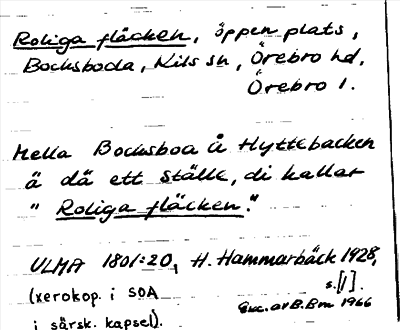 Roliga fläcken, öppen plats,
Bocksboda, Kils sn, Örebro hd,
Örebro l.
Mella Bocksboa å Hyttebacken
ä dä ett ställe, di kallar
" Roliga fläcken."
ULMA 1801:20, H. Hammarbäck 1928,
s. [1].
(xerokop. i SOA
i särsk. kapsel).
Exc. av B. Bm 1966